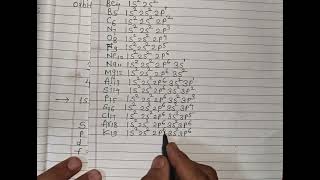 Orbit Be4 1S² 2S²
B5 1S² 2S² 2P¹
C6 1S² 2S² 2P²
N7 1S² 2S² 2P³
O8 1S² 2S² 2P⁴
F9 1S² 2S² 2P⁵
Ne10 1S² 2S² 2P⁶
3 Na11 1S² 2S² 2P⁶ 3S¹
Mg12 1S² 2S² 2P⁶ 3S²
4 Al13 1S² 2S² 2P⁶ 3S² 3P¹
Si14 1S² 2S² 2P⁶ 3S² 3P²
→ 1S P15 1S² 2S² 2P⁶ 3S² 3P³
S16 1S² 2S² 2P⁶ 3S² 3P⁴
Cl17 1S² 2S² 2P⁶ 3S² 3P⁵
S Ar18 1S² 2S² 2P⁶ 3S² 3P⁶
P K19 1S² 2S² 2P⁶ 3S² 3P⁶
d
f